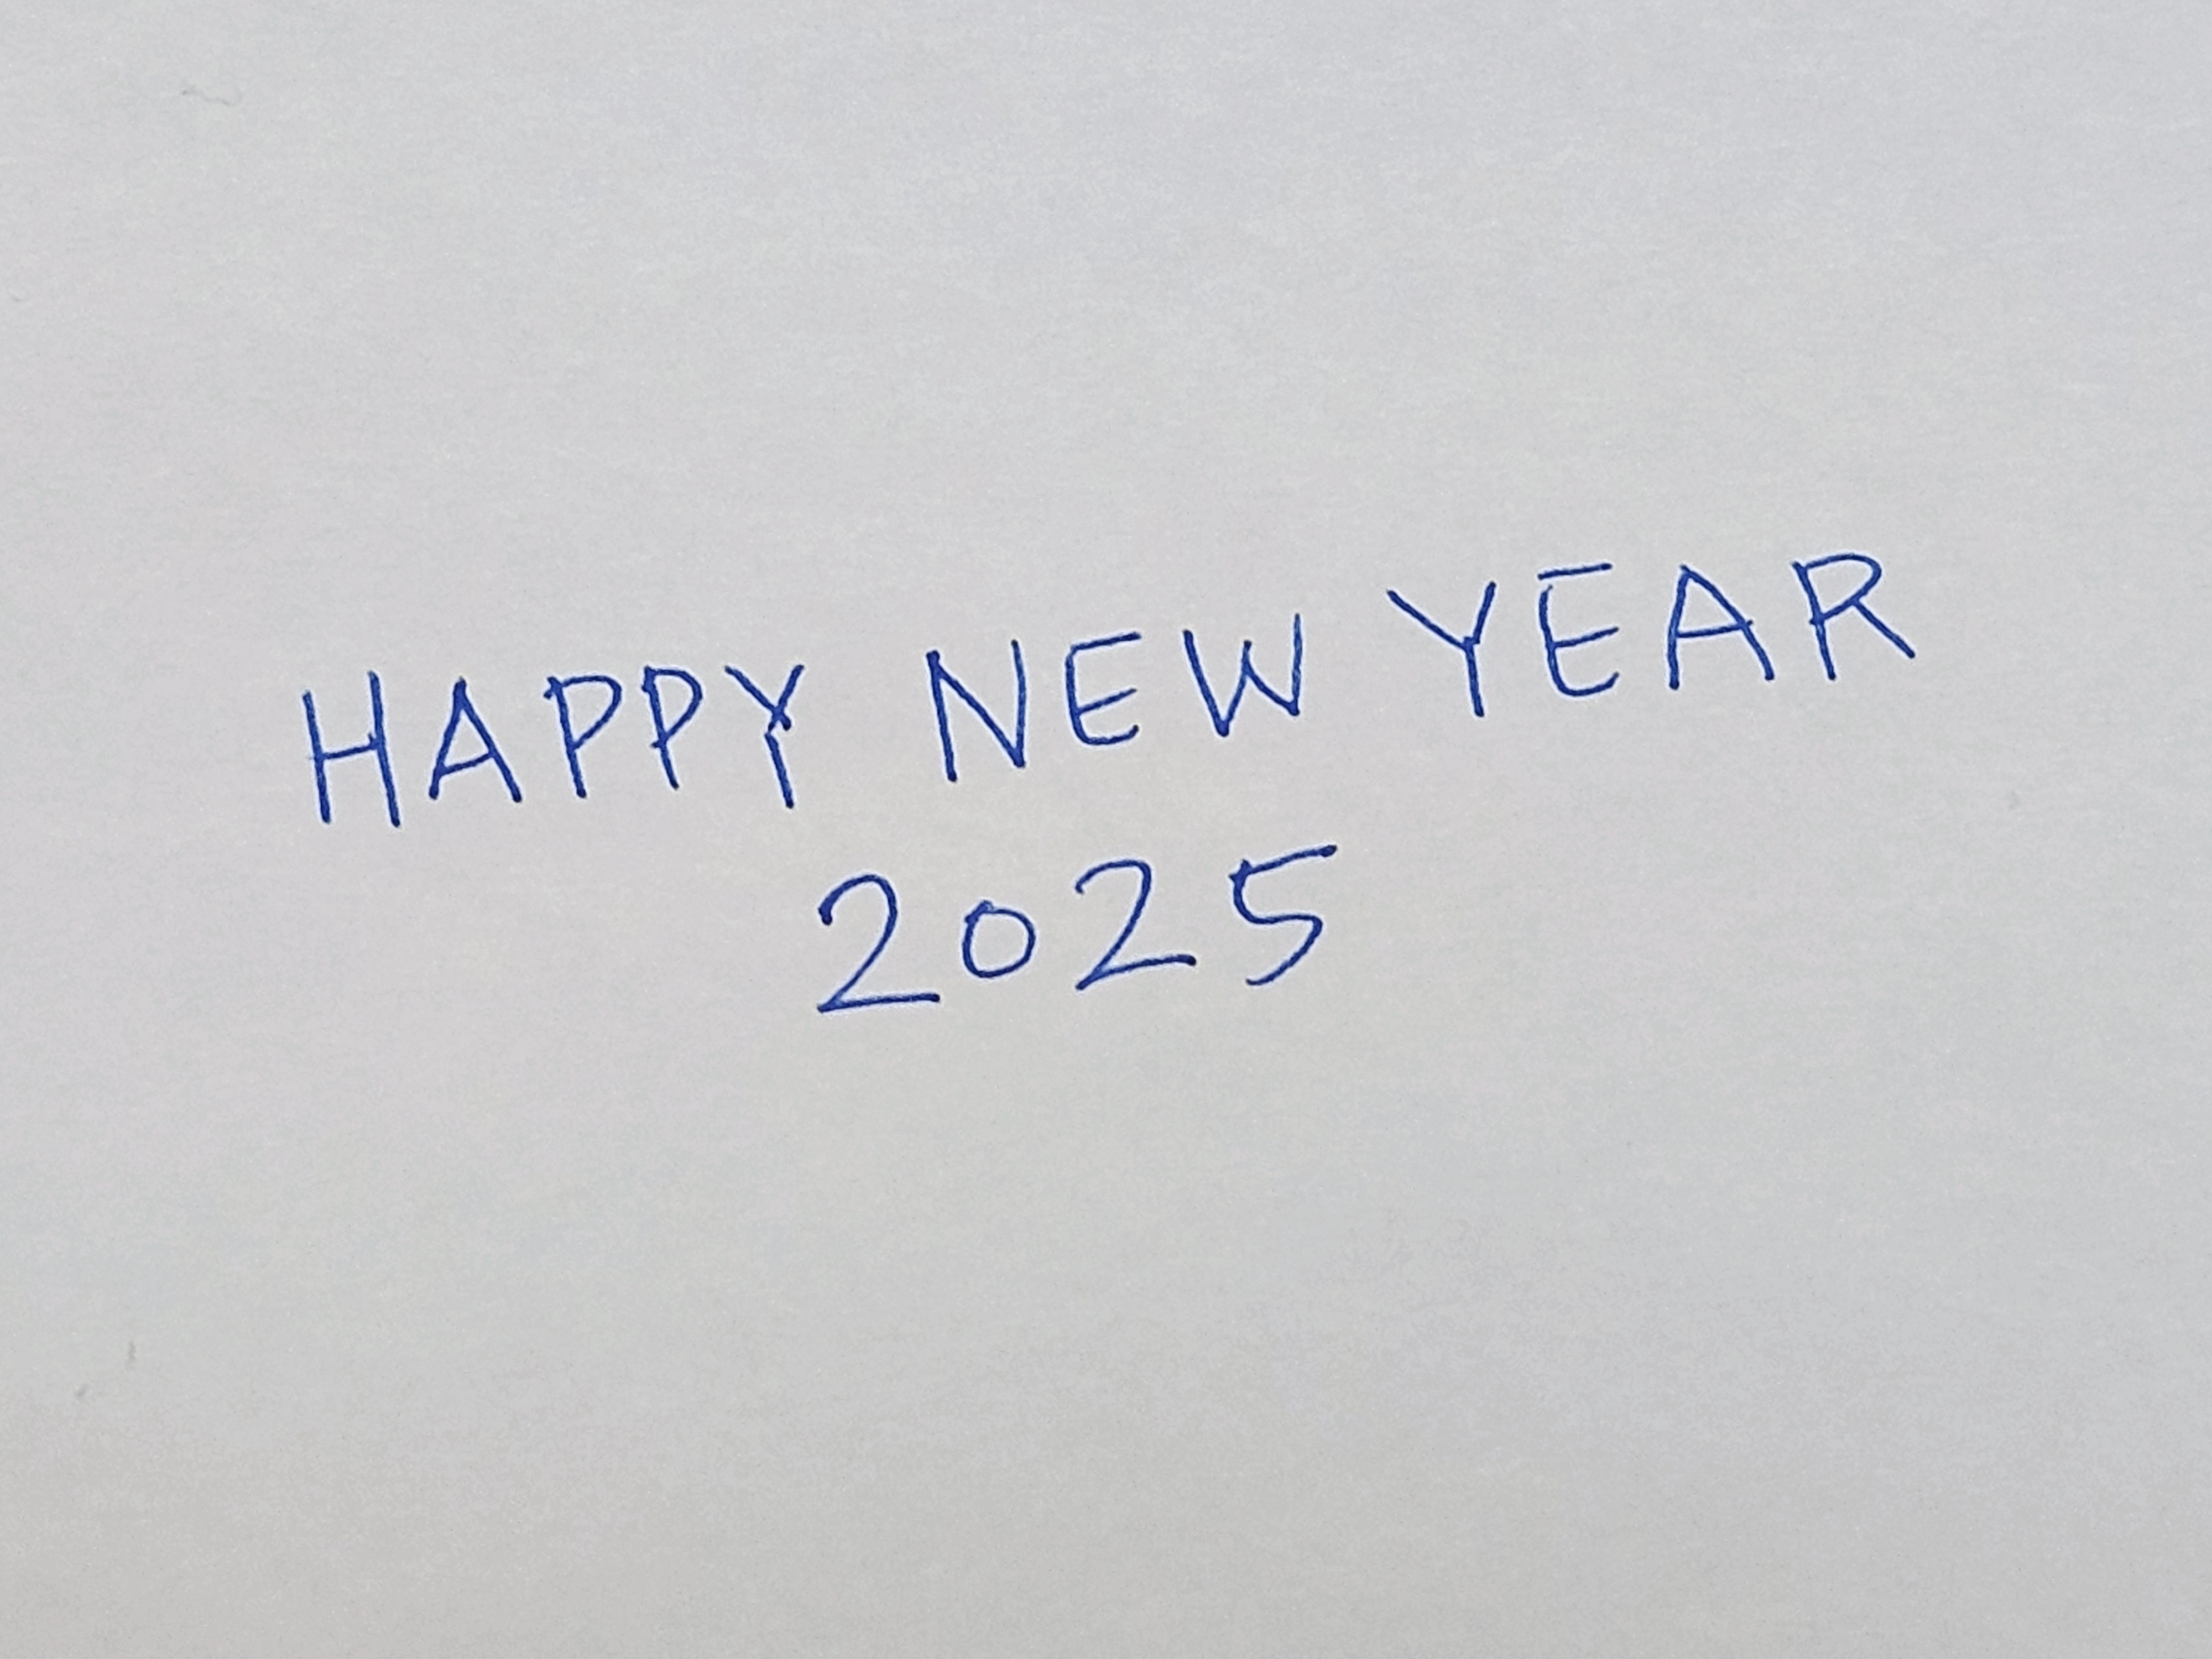 HAPPY NEW YEAR
2025